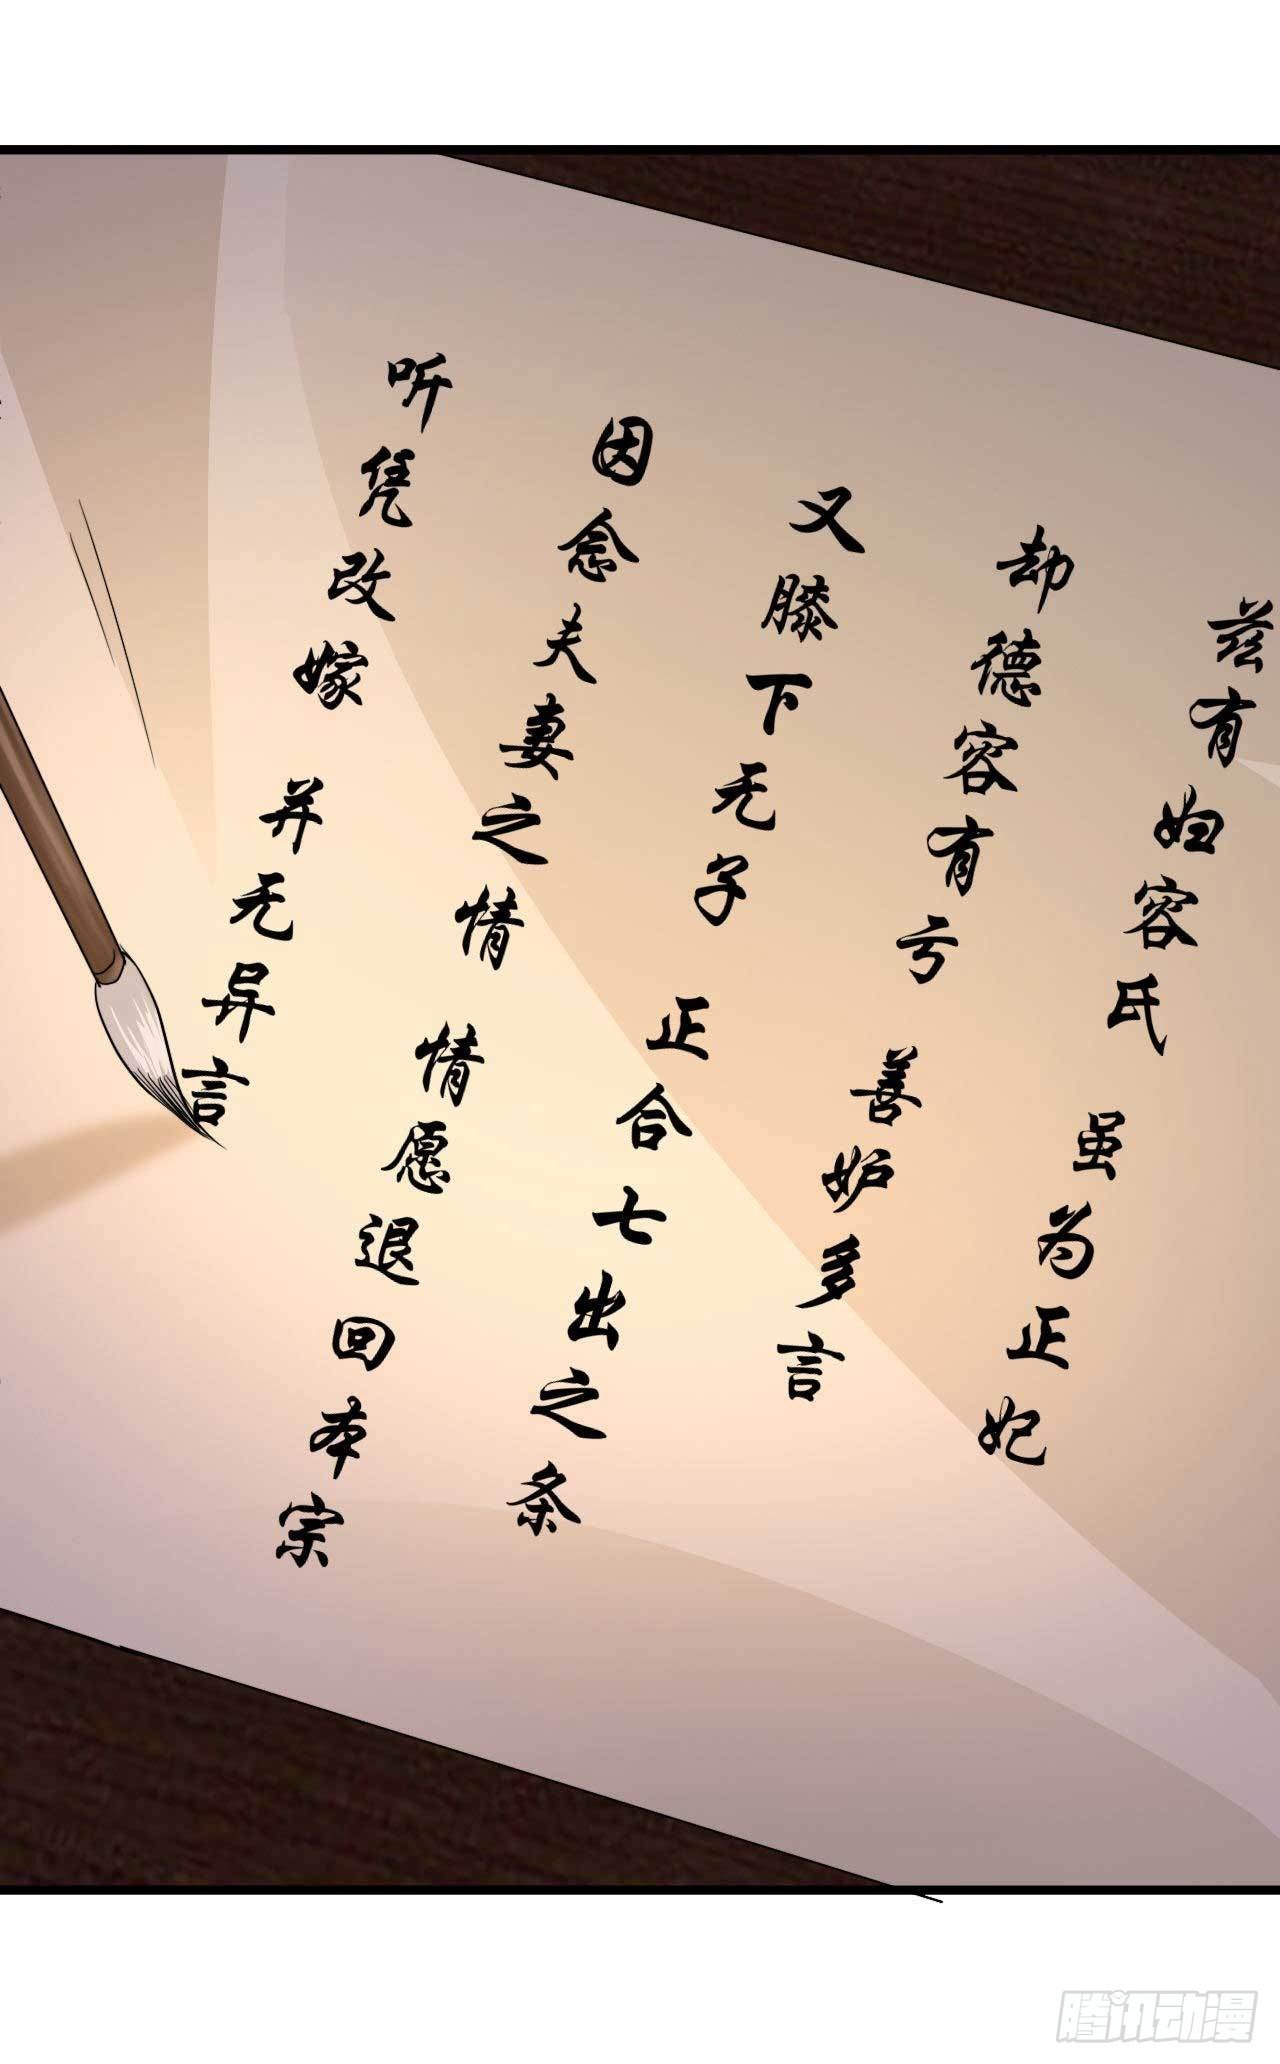 兹有妇容氏 虽为正妃
劫德容有亏 善妒多言
又膝下无子 正合七出之条
因念夫妻之情 情愿退回本宗
听凭改嫁 并无异言
腾讯动漫